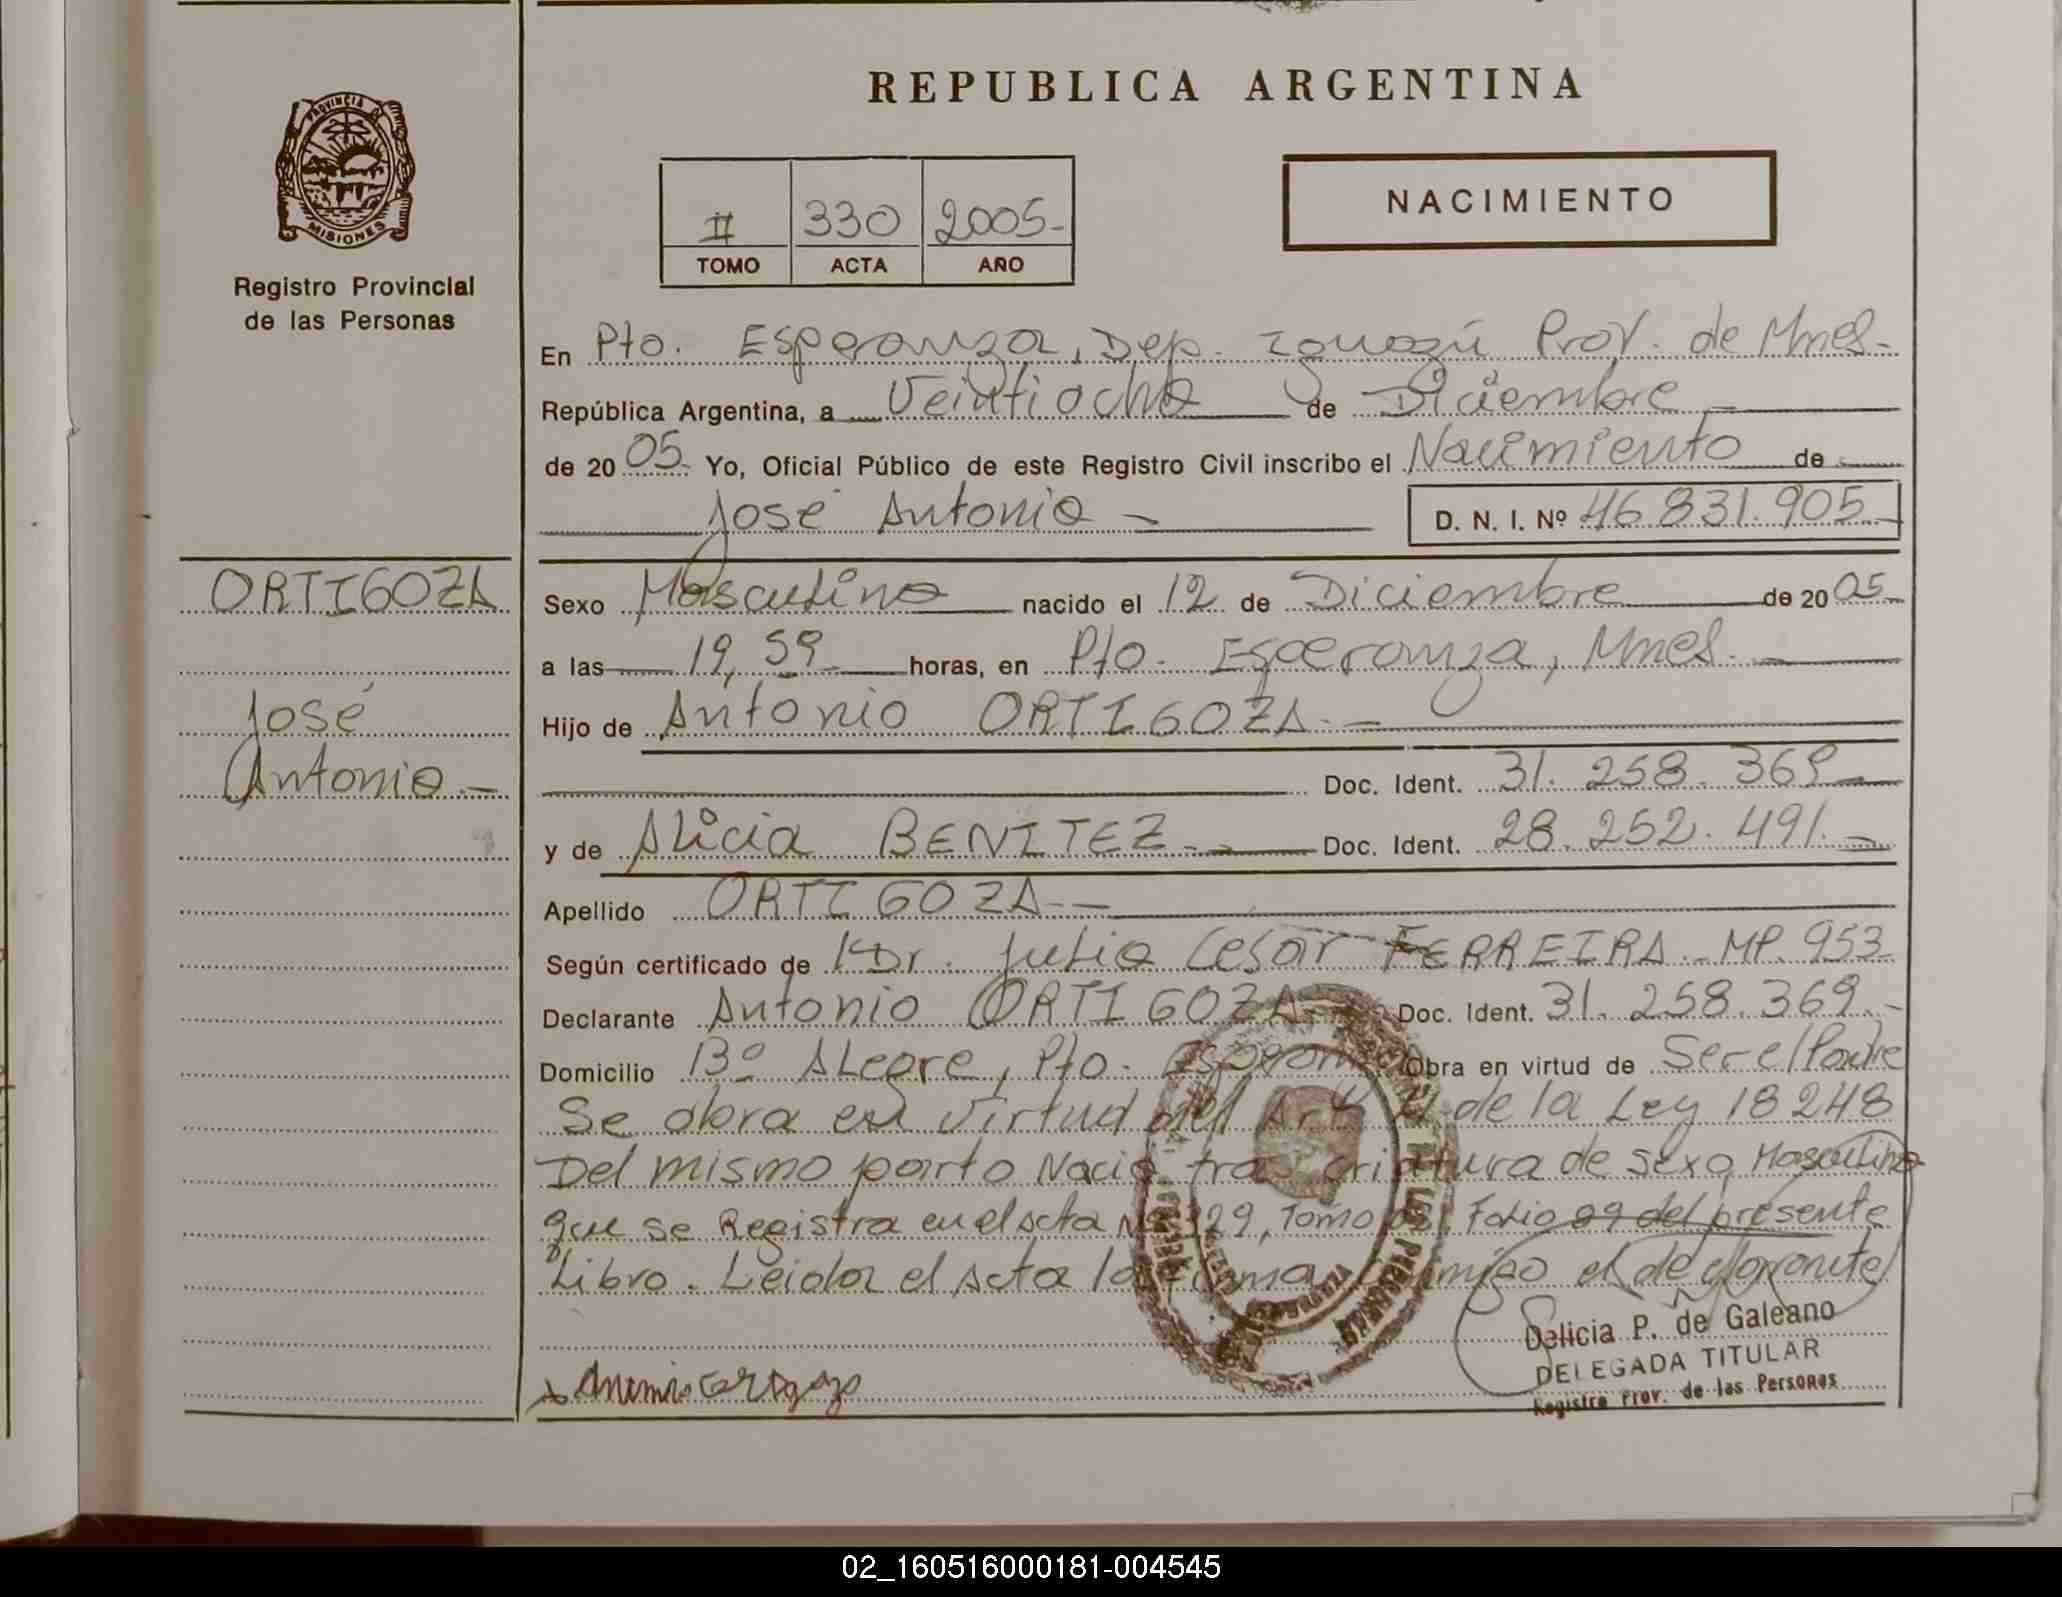 REPUBLICA ARGENTINA
PROVINCIA DE
MISIONES
Registro Provincial
de las Personas
II 330 2005-
TOMO ACTA AÑO
NACIMIENTO
En Pto. Esperanza, Dep. Iguazú Prov. de Mnes.-
República Argentina, a Veintiocho de Diciembre
de 20 05- Yo, Oficial Público de este Registro Civil inscribo el Nacimiento de
José Antonio - D. N. I. Nº 46.831.905-
ORTIGOZA
José
Antonio.-
Sexo Masculino nacido el 12 de Diciembre de 20 05-
a las 19,59 horas, en Pto. Esperanza, Mnes.-
Hijo de Antonio ORTIGOZA.-
Doc. Ident. 31.258.369-
y de Alicia BENITEZ.- Doc. Ident. 28.252.491.-
Apellido ORTIGOZA.-
Según certificado de Dr. Julio Cesar FERREIRA.- MP. 953
Declarante Antonio ORTIGOZA Doc. Ident. 31.258.369.-
Domicilio Bº Alegre, Pto. Esperanza Obra en virtud de Ser el Padre
Se obra en virtud del Art de la Ley 18248
Del mismo parto Nació criatura de sexo Masculino
que se Registra en el acta Nº 329, Tomo Folio 09 del presente
Libro. Leida el Acta la firma el declarante
Antonio Ortigoza
Delicia P. de Galeano
DELEGADA TITULAR
Registro Prov. de las Personas
02_160516000181-004545